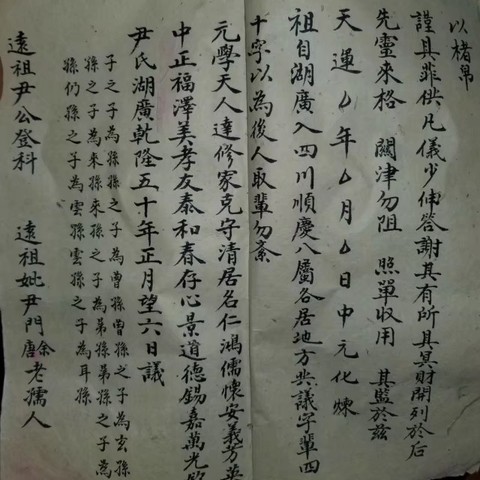 以楮帛
謹具菲供凡儀少伸答謝具有所具冥財開列於后
先靈來格 關津勿阻 照單收用 其監於茲
天運厶年厶月厶日中元化煉
祖自湖廣入四川順慶八屬各居地方共議字輩四
十字以為後人取輩勿紊
元學天人達修家克守清居名仁鴻儒懷安義芳英
中正福澤美孝友泰和春存心景道德錫嘉萬光
尹氏湖廣乾隆五十年正月望六日議
子之子為孫孫之子為曾孫曾孫之子為玄孫
孫之子為來孫來孫之子為弟孫弟孫之子為
孫仍孫之子為雲孫雲孫之子為耳孫
遠祖尹公登科 遠祖妣尹門余唐老孺人